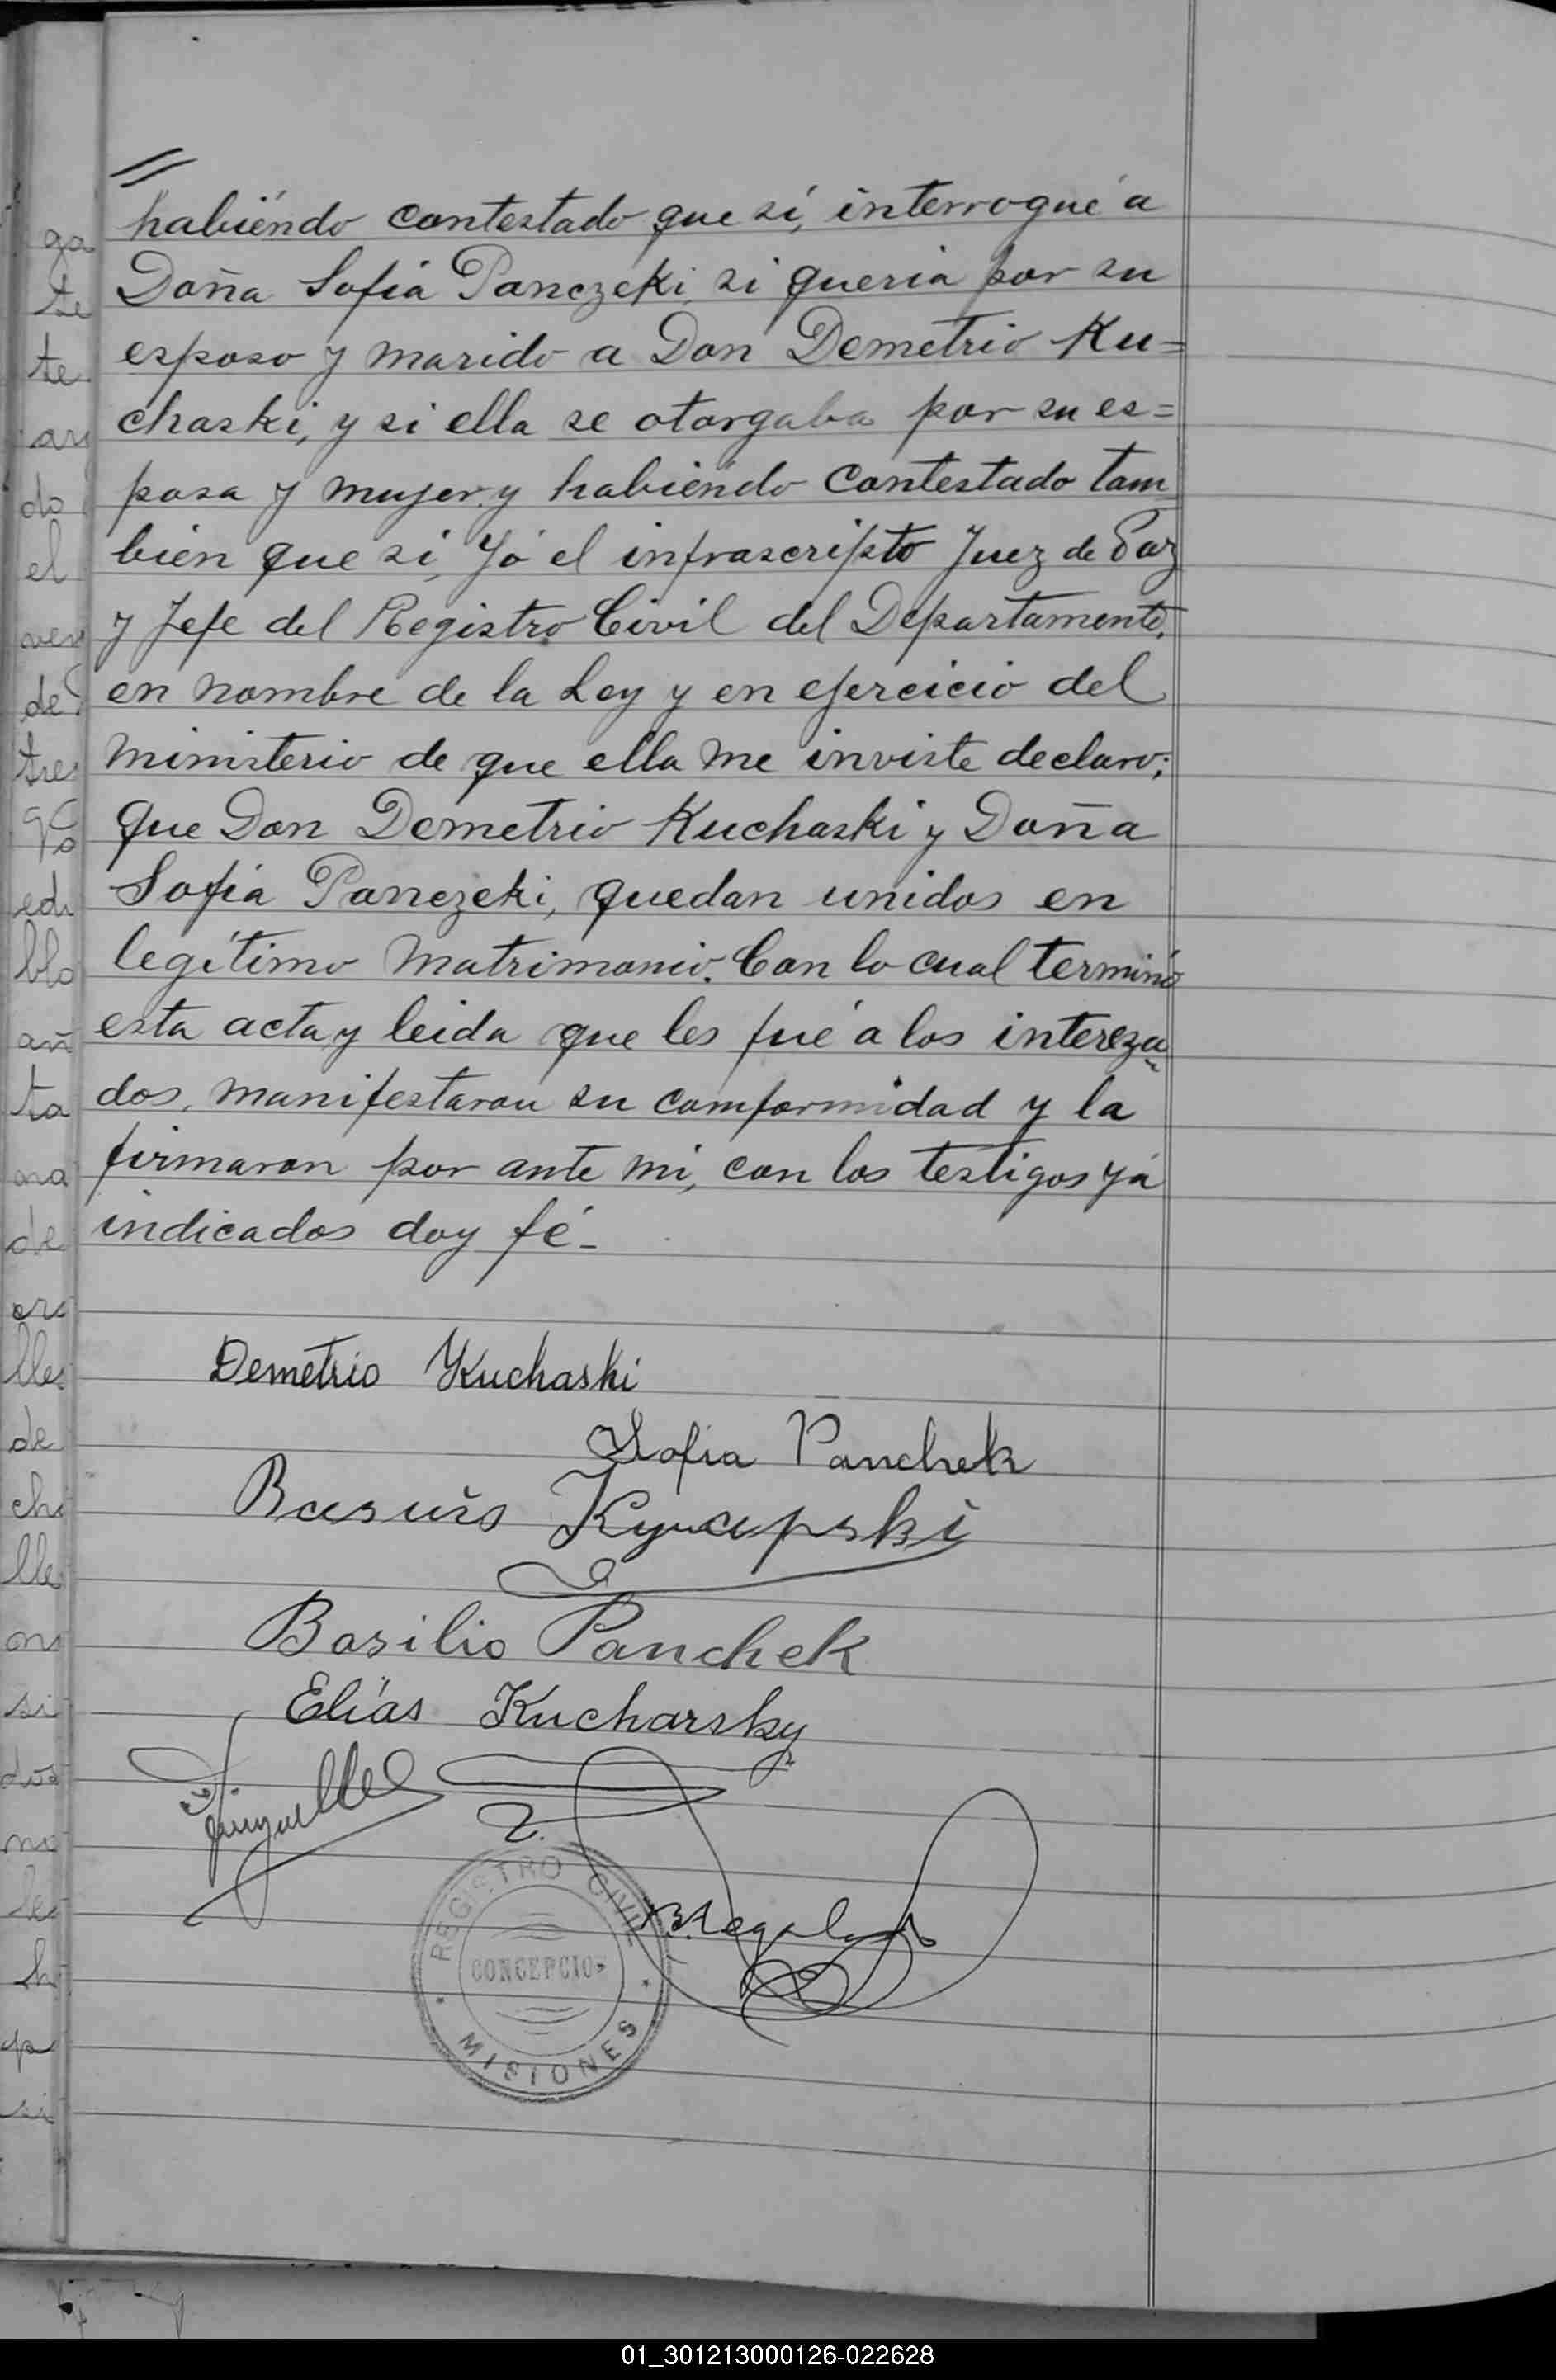 habiéndo contestado que sí, interrogué a
Doña Sofía Panczeki, si queria por su
esposo y marido a Don Demetrio Ku=
chaski, y si ella se otorgaba por su es=
posa y mujer y habiéndo contestado tam
bien que sí, Yó el infrascripto Juez de Paz
y Jefe del Registro Civil del Departamento,
en nombre de la Ley y en ejercicio del
ministerio de que ella me inviste declaro;
que Don Demetrio Kuchaski y Doña
Sofía Panczeki, quedan unidos en
legítimo matrimonio. Con lo cual terminó
esta acta y leida que les fué a los intereza
dos, manifestaron su comformidad y la
firmaron por ante mí, con los testigos yá
indicados doy fé.-
Demetrio Kuchaski
Sofia Panchek
Basilio Panchek
Elías Kucharsky
REGISTRO CIVIL
CONCEPCION
MISIONES
01_301213000126-022628